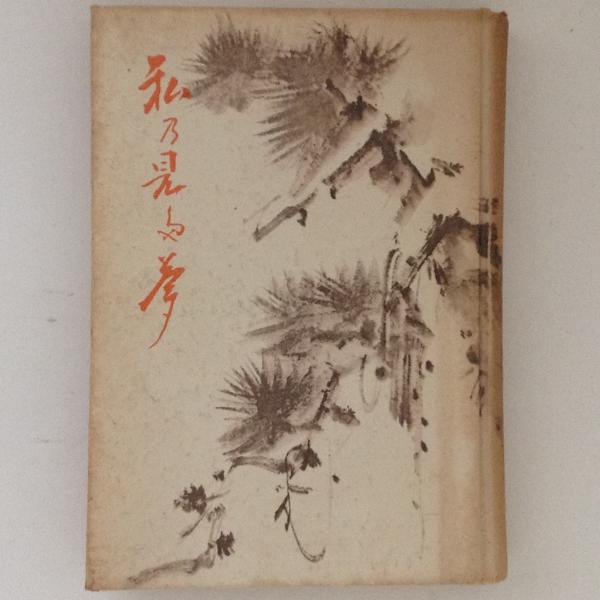 私乃見た夢